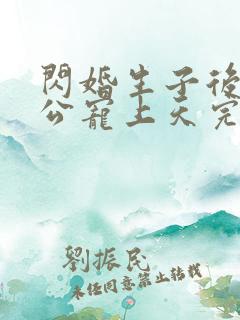 閃婚生子後
公寵上天完
劉振民
未经同意禁止转载